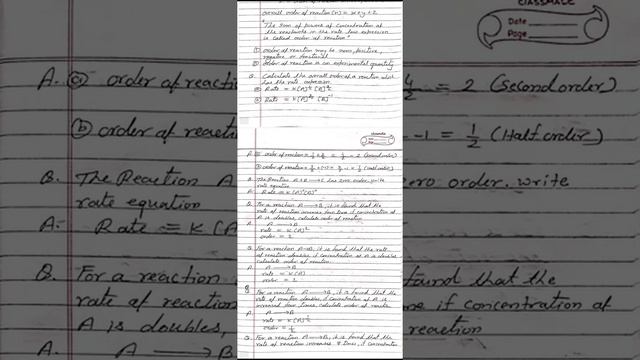 overall order of reaction (n) = x+y+z
"The sum of powers of concentration of
the reactants in the rate law expression
is called order of reaction"
① order of reaction may be zero, positive,
negative or fractional
② order of reaction is an experimental quantity
Q. Calculate the overall order of a reaction which
has the rate expression.
ⓐ Rate = K[A]
ⓑ Rate = K[A] [B]⁻¹
classmate
Date
Page
A. ⓐ order of reaction = 1/2 + 3/2 = 4/2 = 2 (second order)
ⓑ order of reaction = 3/2 + (-1) = 3/2 - 1 = 1/2 (half order)
Q. The Reaction A+B → C has zero order. write
rate equation
A. Rate = K[A]⁰[B]⁰
Q. For a reaction A → B, it is found that the
rate of reaction increases four times if concentration of
A is doubles, calculate order of reaction.
A. A → B
rate = K[A]²
order = 2
Q. For a reaction A → B, it is found that the rate
of reaction doubles if concentration of A is doubles
calculate order of reaction.
A. A → B
rate = K[A]
order = 1
Q. For a reaction A → B, it is found that the
rate of reaction doubles if concentration of A is
increased four times, calculate order of reaction.
A. A → B
rate = K[A]^1/2
order = 1/2
Q. For a reaction A → B, it is found that the
rate of reaction increases 8 times, if concentration
CLASSMATE
Date
Page
A. ⓐ order of reac
4/2 = 2 (Second order)
ⓑ order of reac
-1 = 1/2 (Half order)
Q. The Reaction A
zero order. write
rate equation
A. Rate = K[A
B. For a reaction
found that the
rate of reaction
if concentration of
A is doubles,
reaction
A. A → B